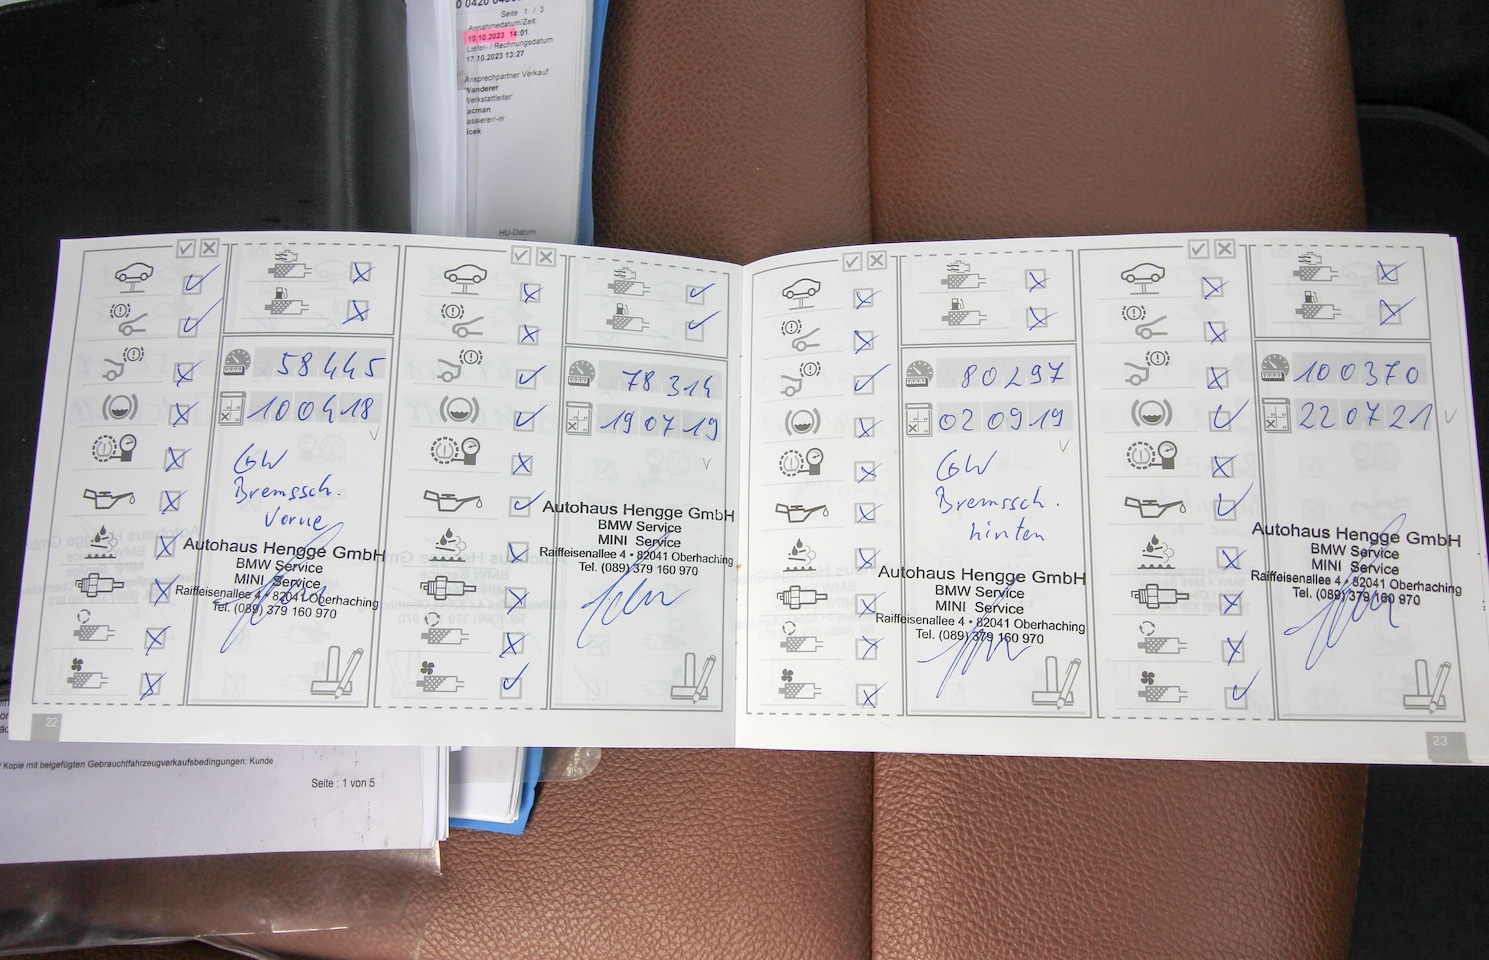 Seite 1 / 3
Annahmedatum/Zeit:
10.10.2023 14:01
Liefer- / Rechnungsdatum
17.10.2023 13:27
Ansprechpartner Verkauf:
Wanderer
Werkstattleiter:
acman
assierer/-in:
icek
HU-Datum
58445
100418
GW
Bremssch.
Vorne
Autohaus Hengge GmbH
BMW Service
MINI Service
Raiffeisenallee 4 • 82041 Oberhaching
Tel. (089) 379 160 970
22
78314
190719
Autohaus Hengge GmbH
BMW Service
MINI Service
Raiffeisenallee 4 • 82041 Oberhaching
Tel. (089) 379 160 970
80297
020919
GW
Bremssch.
hinten
Autohaus Hengge GmbH
BMW Service
MINI Service
Raiffeisenallee 4 • 82041 Oberhaching
Tel. (089) 379 160 970
100370
220721
Autohaus Hengge GmbH
BMW Service
MINI Service
Raiffeisenallee 4 • 82041 Oberhaching
Tel. (089) 379 160 970
23
Kopie mit beigefügten Gebrauchtfahrzeugverkaufsbedingungen: Kunde
Seite : 1 von 5